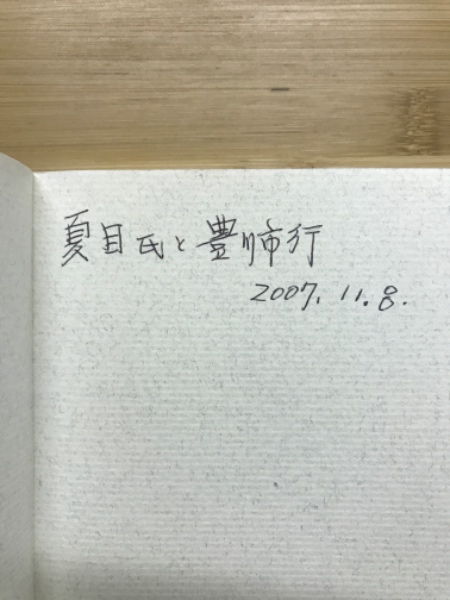 夏目氏と豊师行
2007.11.8.